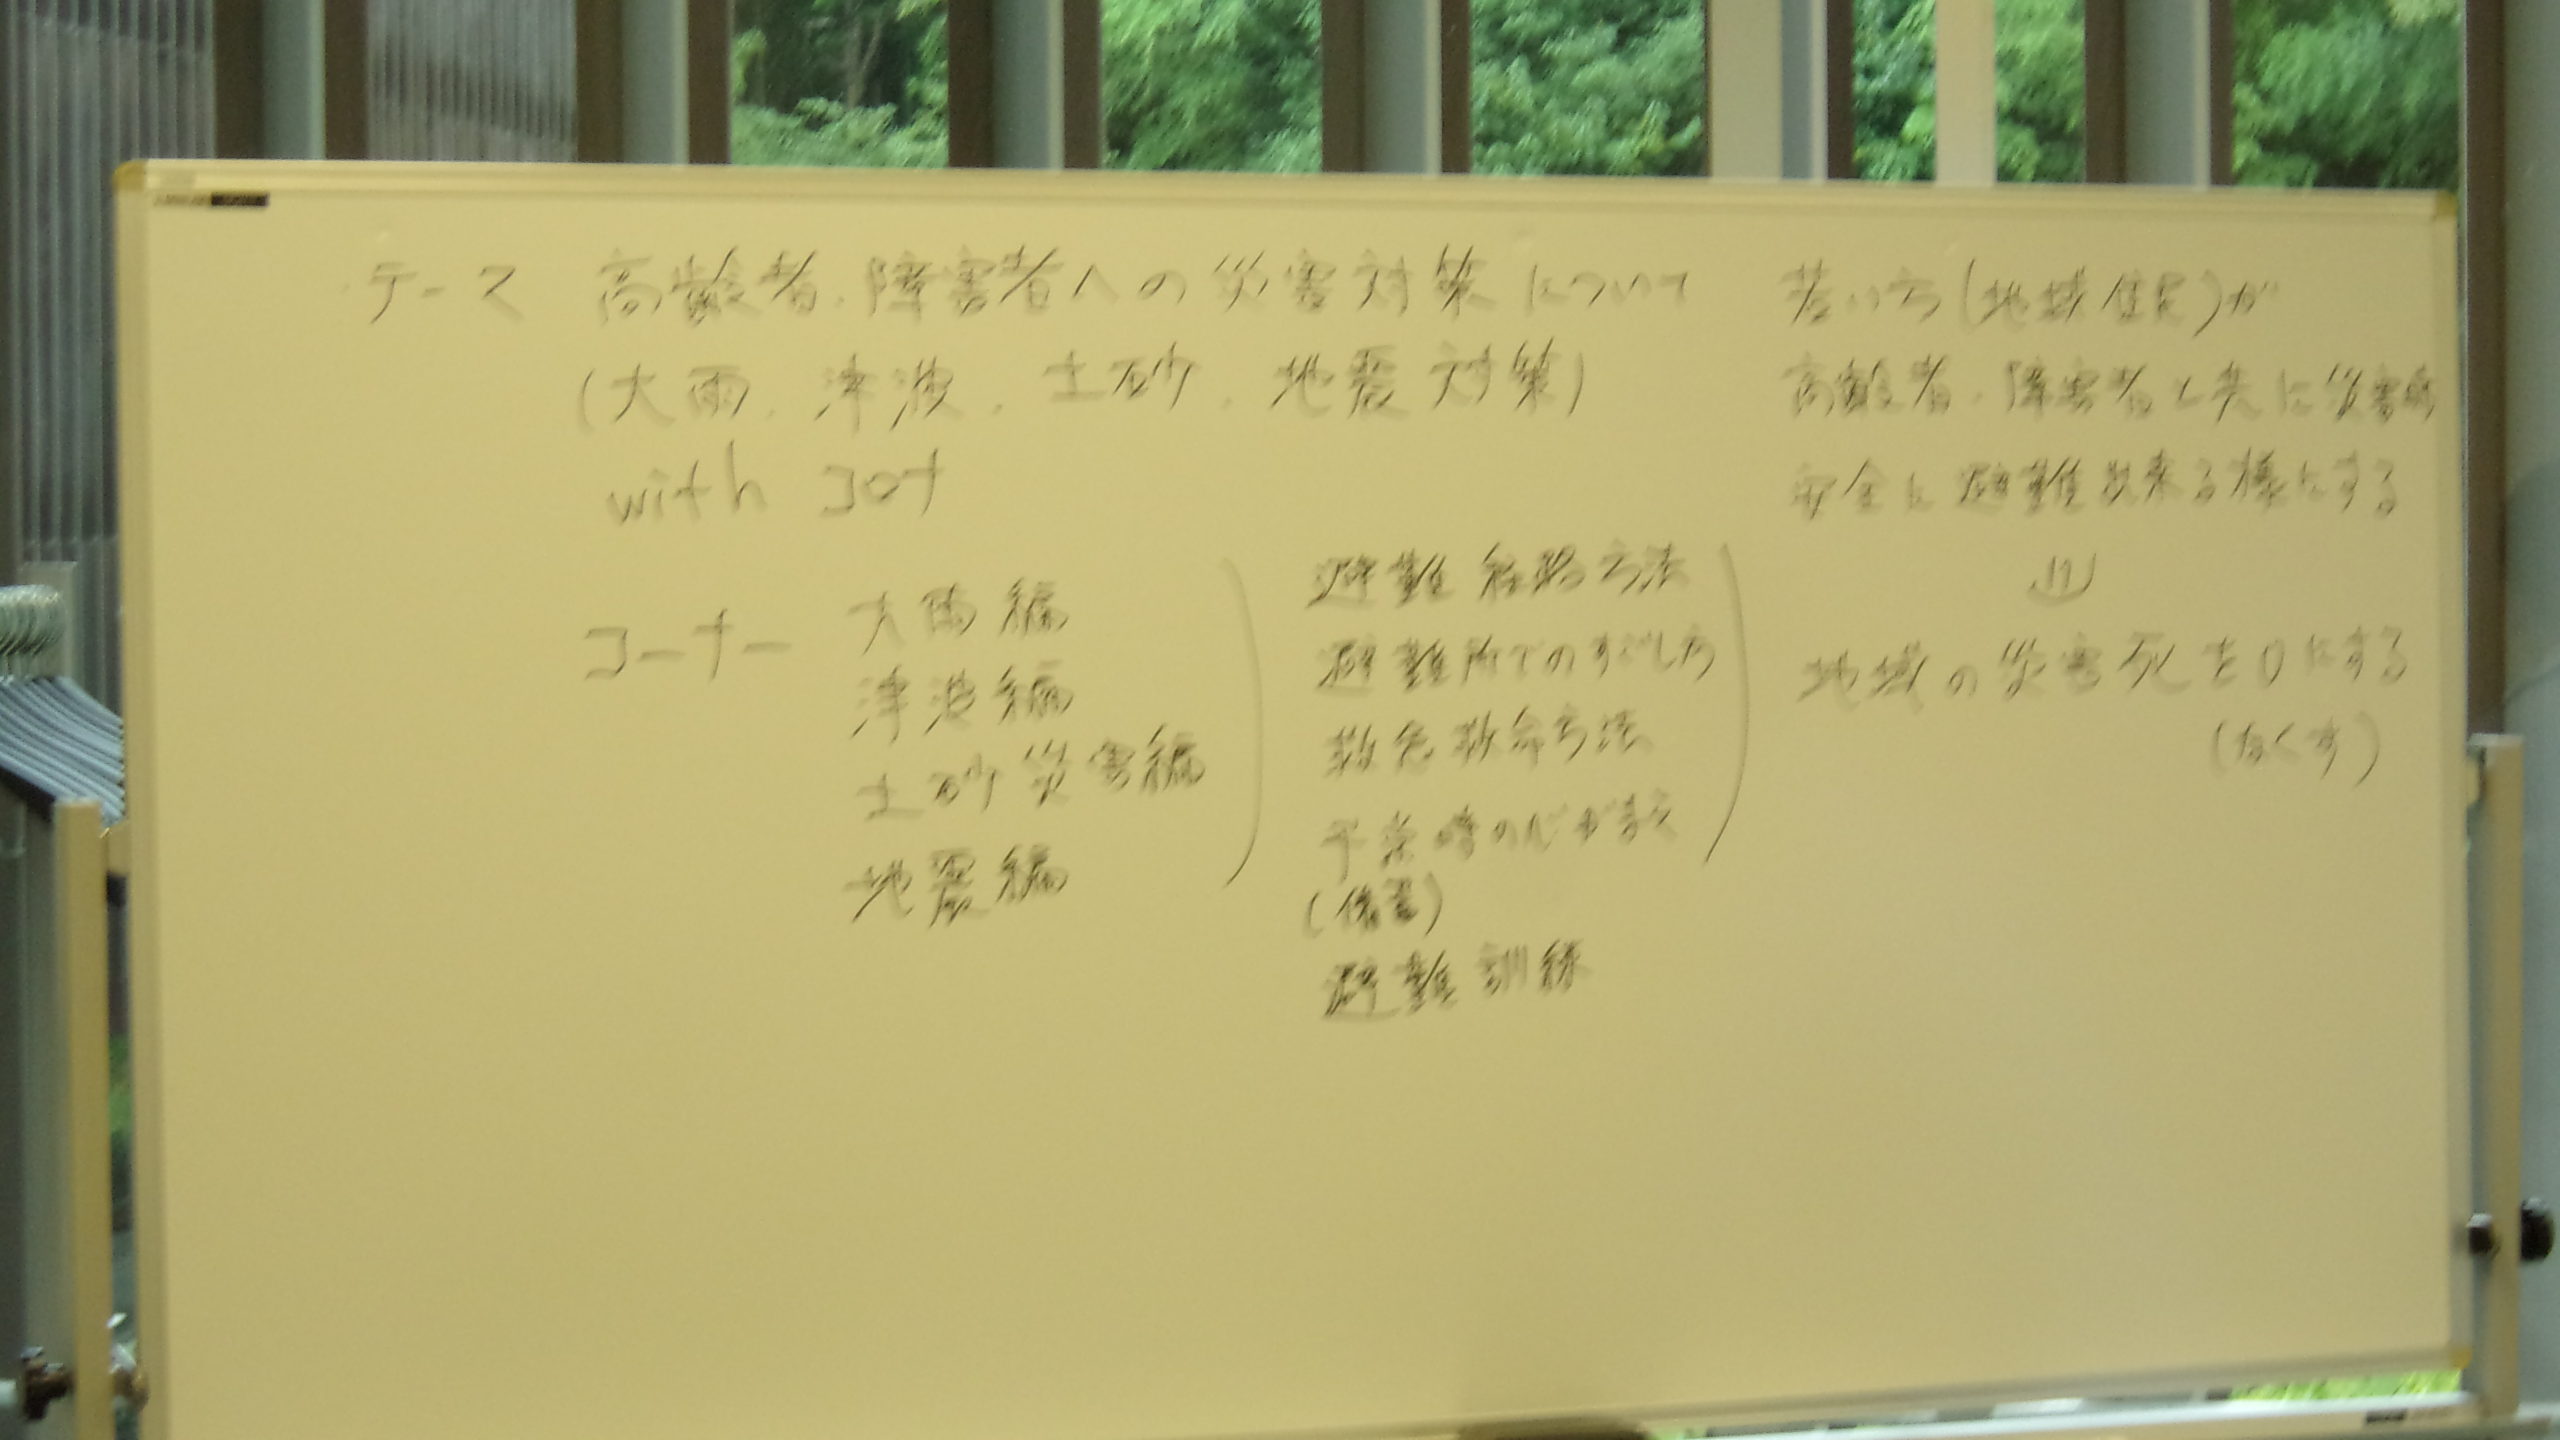 テーマ 高齢者、障害者への災害対策について
(大雨、津波、土砂、地震対策)
with コロナ
コーナー 大雨編
津波編
土砂災害編
地震編
避難経路方法
避難所でのすごし方
救急救命方法
平常時の心がまえ
(備蓄)
避難訓練
若い方(地域住民)が
高齢者、障害者と共に災害時
安全に避難出来る様にする
⇓
地域の災害死を0にする
(なくす)